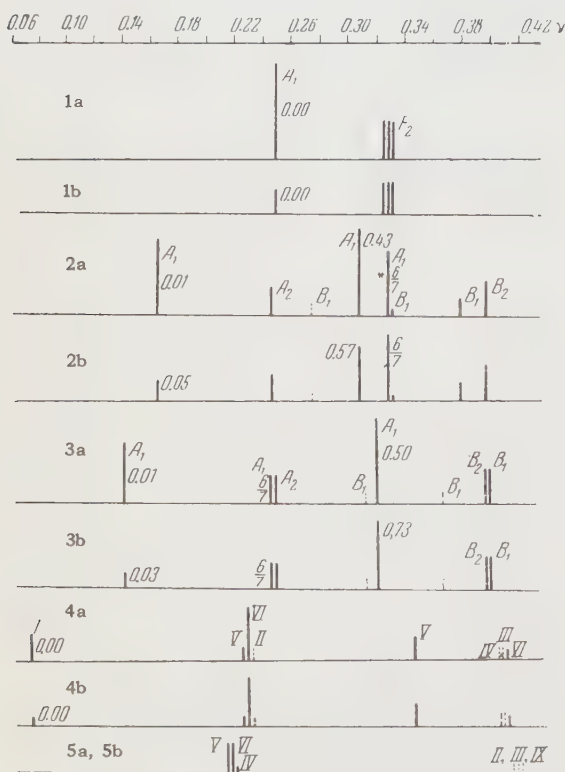 0.06 0.10 0.14 0.18 0.22 0.26 0.30 0.34 0.38 0.42 ν
1a A₁ 0.00 F₂
1b 0.00
2a A₁ 0.01 A₂ B₁ A₁ 0.43 A₁ 6/7 B₁ B₁ B₂
2b 0.05 0.57 6/7
3a A₁ 0.01 A₁ 6/7 A₂ B₁ A₁ 0.50 B₁ B₂ B₁
3b 0.03 6/7 0,73 B₂ B₁
4a I 0.00 V VI II V IV III VI
4b 0.00
5a, 5b V VI IV II, III, IX